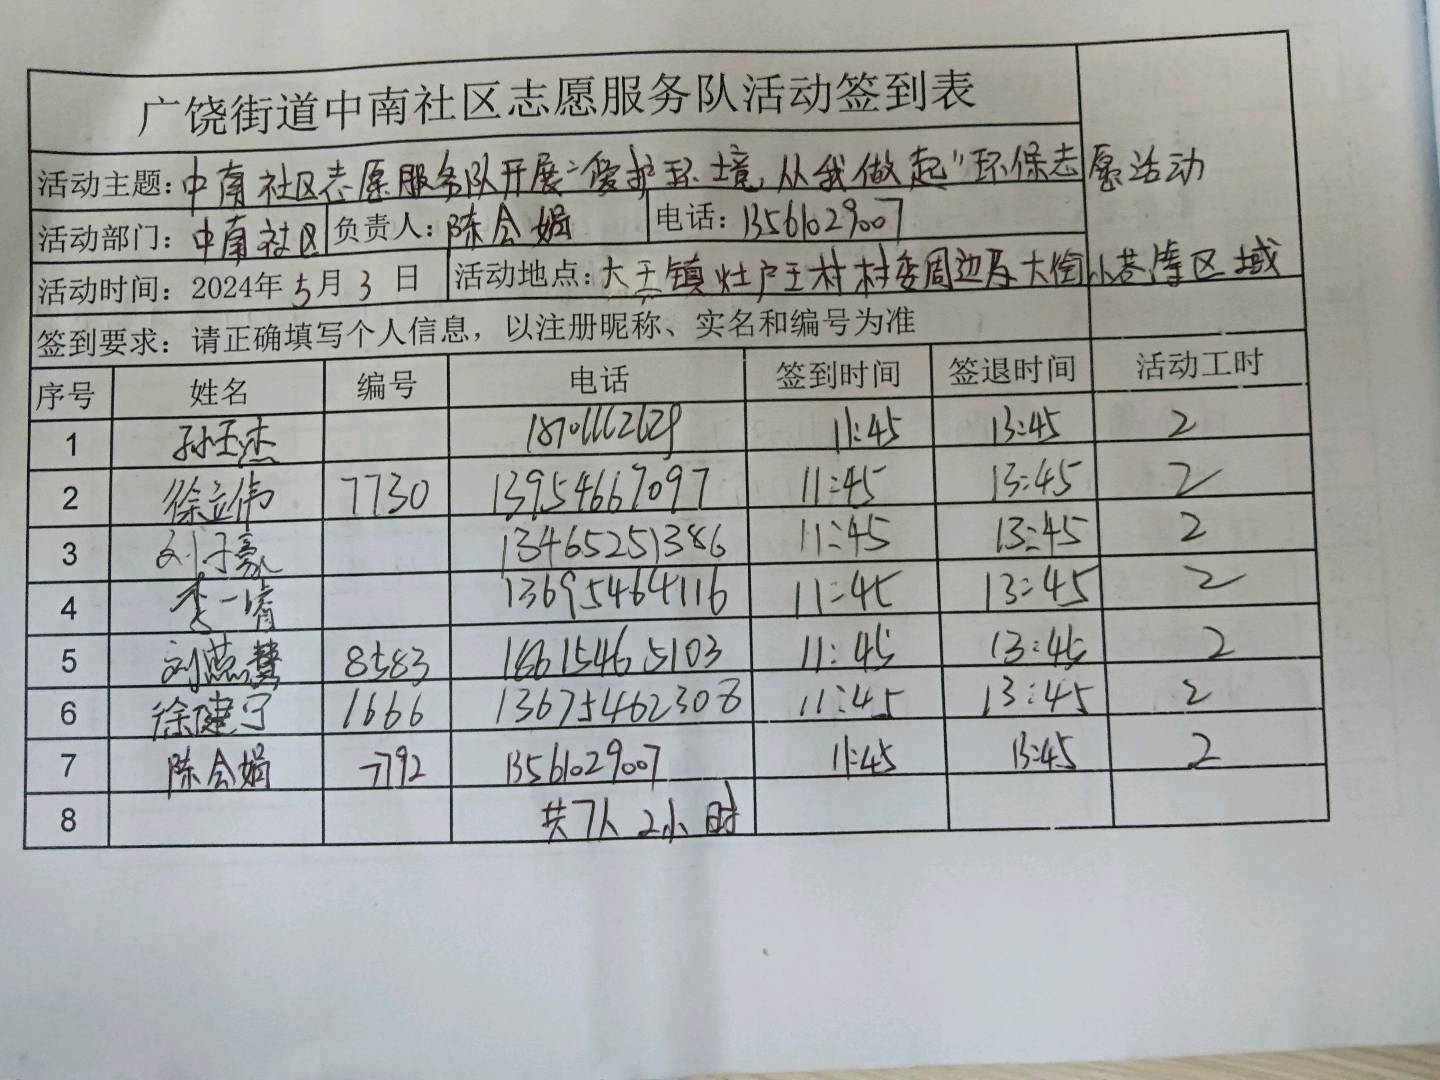 广饶街道中南社区志愿服务队活动签到表
活动主题：中南社区志愿服务队开展“爱护环境，从我做起”环保志愿活动
活动部门：中南社区 负责人：陈会娟 电话：13561029007
活动时间：2024年5月3日 活动地点：大王镇灶户王村村委周边及大街小巷等区域
签到要求：请正确填写个人信息，以注册昵称、实名和编号为准
序号 姓名 编号 电话 签到时间 签退时间 活动工时
1 孙玉杰 11:45 13:45 2
2 徐立伟 7730 13954667097 11:45 13:45 2
3 刘子豪 13465251386 11:45 13:45 2
4 李一清 13695464116 11:45 13:45 2
5 刘燕慧 8583 18615465103 11:45 13:45 2
6 徐建宁 1666 13675462308 11:45 13:45 2
7 陈会娟 7792 13561029007 11:45 13:45 2
8 共7人 2小时